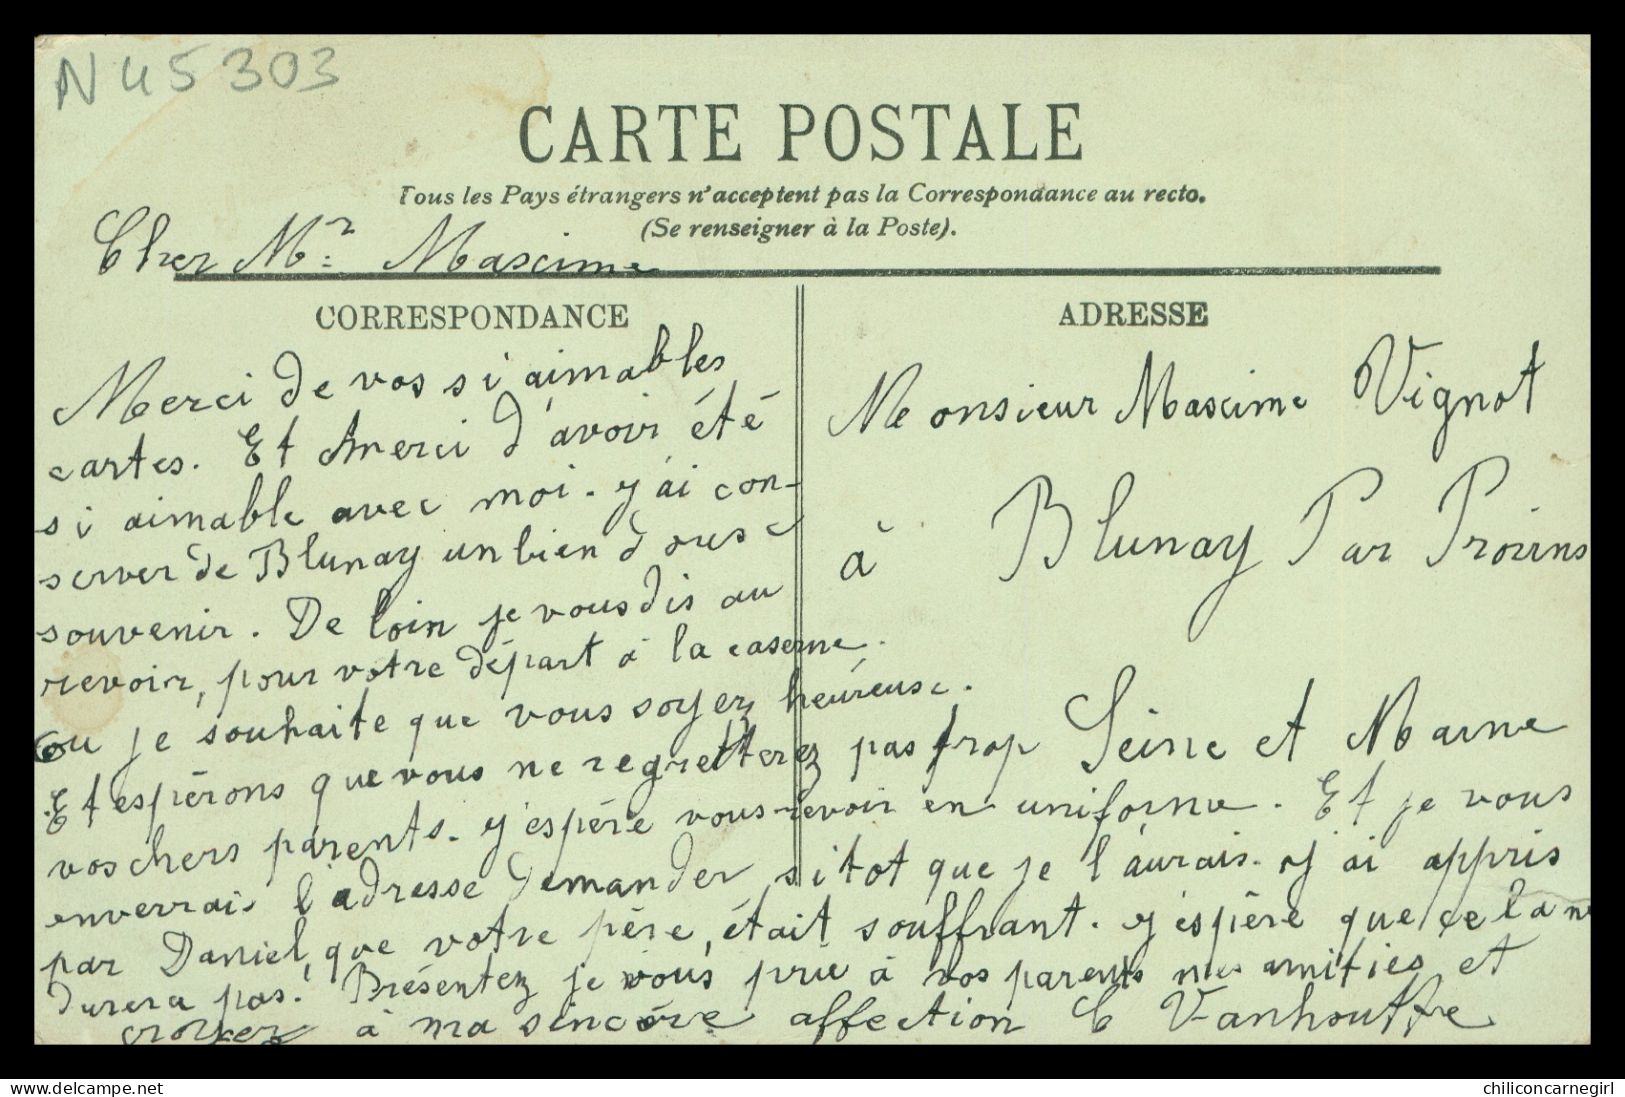 N 45303
CARTE POSTALE
Tous les Pays étrangers n'acceptent pas la Correspondance au recto.
(Se renseigner à la Poste).
Cher Mr: Mascime
CORRESPONDANCE
Merci de vos si aimables
cartes. Et merci d'avoir été
si aimable avec moi. y'ai con-
server de Blunay un bien douse
souvenir. De loin je vous dis au
revoir, pour votre départ à la caserne.
ou je souhaite que vous soyez heureuse.
Et espérons que vous ne regretterez pas trop
vos chers parents. y'espère vous revoir en uniforme. Et je vous
enverrais l'adresse demander sitot que je l'aurais. y'ai appris
par Daniel, que votre père, était souffrant. y'espère que cela ne
durera pas. Présentez je vous prie à vos parents mes amitiés et
croyez à ma sincère affection C Vanhoutte
ADRESSE
Monsieur Mascime Vignot
à Blunay Par Provins
Seine et Marne
delcampe.net
chiliconcarnegirl